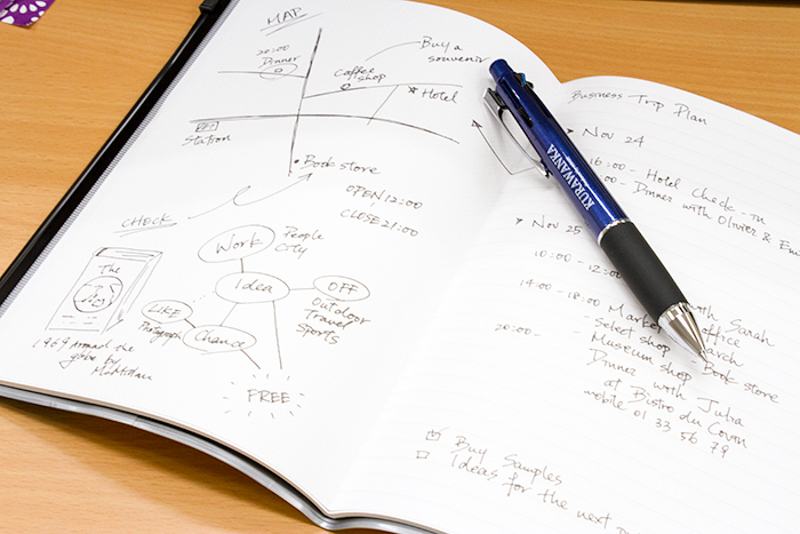 MAP
20:00
Dinner
Buy a
souvenir
Coffee
shop
Hotel
Station
Book store
OPEN 12:00
CLOSE 21:00
CHECK
Work
People
City
Idea
OFF
Outdoor
Travel
Sports
LIKE
Photograph
Chance
FREE
The
1969 Around the
globe by
Business Trip Plan
Nov 24
16:00 - Hotel Check-in
:00 - Dinner with Olivier &
Nov 25
10:00 - 12:00
with Sarah
office
14:00 - 18:00 Market
- Select shop - Book store
- Museum shop
20:00 - Dinner with Julia
at Bistro du
mobile 01 33 56 79
Buy Samples
Ideas for the next
KURAWANKA